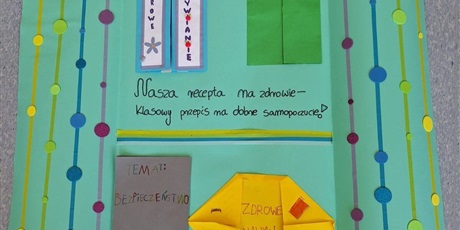 ROWE
YWIANIE
Nasza recepta na zdrowie –
klasowy przepis na dobre samopoczucie!
TEMAT:
BEZPIECZEŃSTWO
ZDROWE